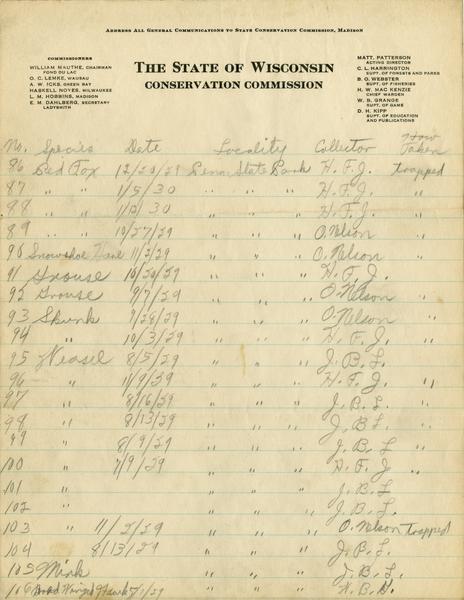 ADDRESS ALL GENERAL COMMUNICATIONS TO STATE CONSERVATION COMMISSION, MADISON
COMMISSIONERS
WILLIAM MAUTHE, CHAIRMAN
FOND DU LAC
O. C. LEMKE, WAUSAU
A. W. ICKS, GREEN BAY
HASKELL NOYES, MILWAUKEE
L. M. HOBBINS, MADISON
E. M. DAHLBERG, SECRETARY
LADYSMITH
THE STATE OF WISCONSIN
CONSERVATION COMMISSION
MATT. PATTERSON
ACTING DIRECTOR
C. L. HARRINGTON
SUPT. OF FORESTS AND PARKS
B. O. WEBSTER
SUPT. OF FISHERIES
H. W. MAC KENZIE
CHIEF WARDEN
W. B. GRANGE
SUPT. OF GAME
D. H. KIPP
SUPT. OF EDUCATION
AND PUBLICATIONS
No. Species Date Locality Collector How Taken
86 Red Fox 12/20/29 Penn. State Park H. F. J. trapped
87 " " 1/5/30 " " " H. F. J. "
88 " " 30 " " " H. F. J. "
89 " " 10/27/29 " " " O. Nelson "
90 Snowshoe Hare 11/2/29 " " " O. Nelson "
91 Grouse 10/20/29 " " " H. F. J. "
92 Grouse 9/7/29 " " " O. Nelson "
93 Skunk 9/28/29 " " " O. Nelson "
94 " 10/3/29 " " " H. F. J. "
95 Weasel 8/5/29 " " " J. B. L. "
96 " 11/9/29 " " " H. F. J. "
97 " 8/16/29 " " " J. B. L. "
98 " 8/13/29 " " " J. B. L. "
99 " 8/9/29 " " " J. B. L. "
100 " 7/9/29 " " " H. F. J. "
101 " " " " J. B. L. "
102 " " " " J. B. L. "
103 " 11/2/29 " " " O. Nelson trapped
104 " 8/13/29 " " " J. B. L. "
105 Mink " " " J. B. L. "
106 Broad Winged Hawk /29 " " "